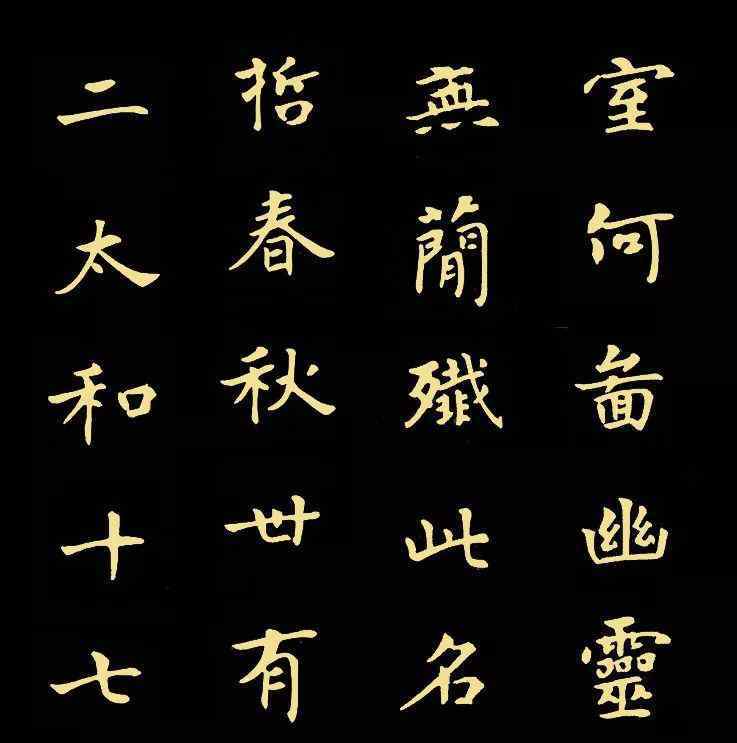 室何啚幽靈
無蕳殲此名
哲春秋丗有
二太和十七